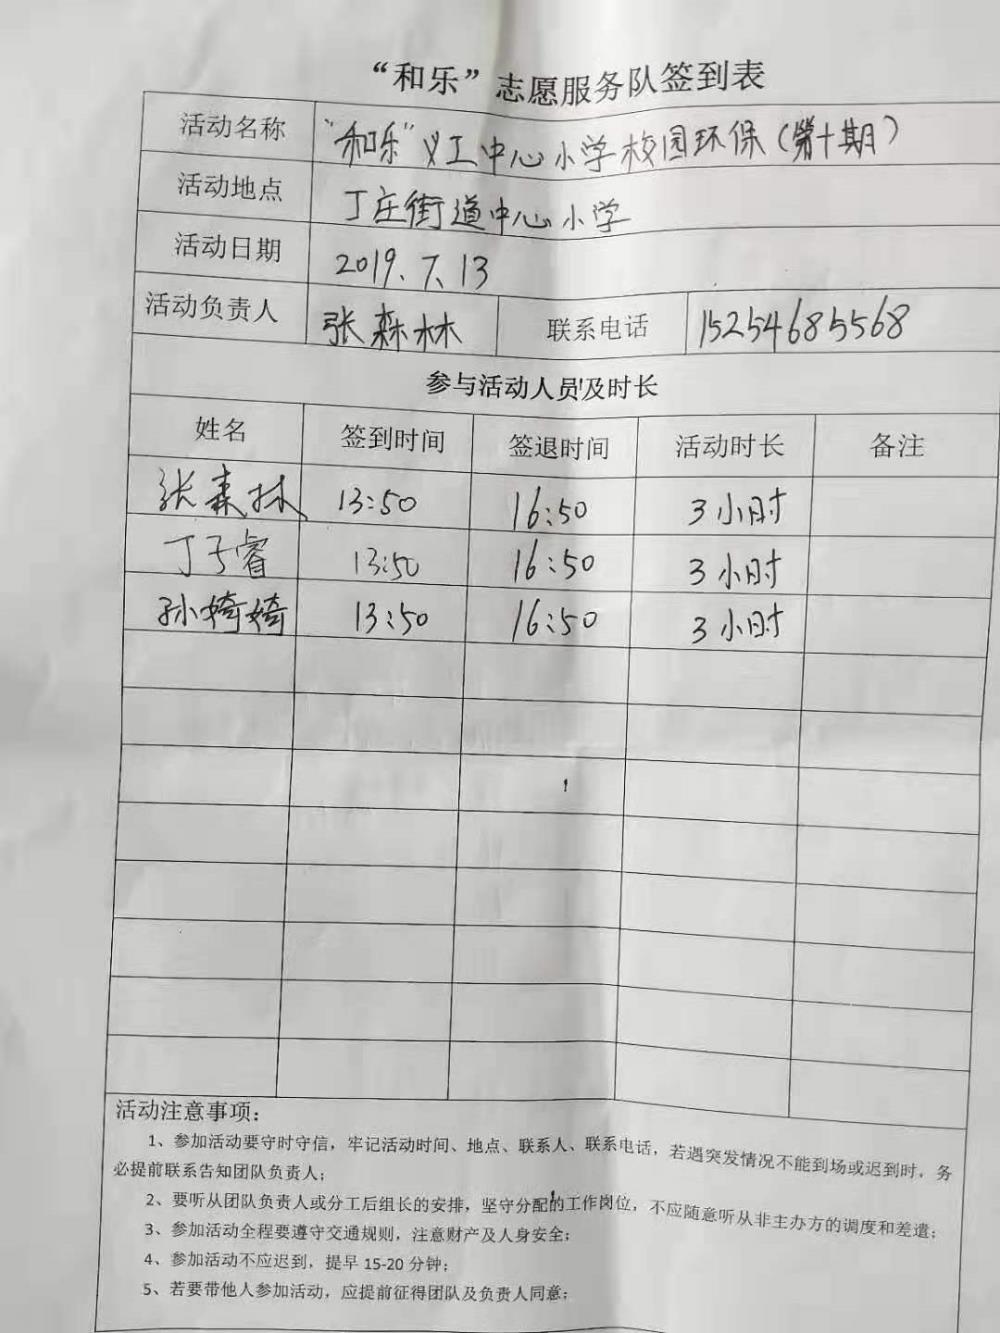 “和乐”志愿服务队签到表
活动名称 “和乐”义工中心小学校园环保（第十期）
活动地点 丁庄街道中心小学
活动日期 2019.7.13
活动负责人 张森林 联系电话 15254685568
参与活动人员及时长
姓名 签到时间 签退时间 活动时长 备注
张森林 13:50 16:50 3小时
丁子睿 13:50 16:50 3小时
孙婍婍 13:50 16:50 3小时
活动注意事项：
1、参加活动要守时守信，牢记活动时间、地点、联系人、联系电话，若遇突发情况不能到场或迟到时，务
必提前联系告知团队负责人；
2、要听从团队负责人或分工后组长的安排，坚守分配的工作岗位，不应随意听从非主办方的调度和差遣；
3、参加活动全程要遵守交通规则，注意财产及人身安全；
4、参加活动不应迟到，提早 15-20 分钟；
5、若要带他人参加活动，应提前征得团队及负责人同意；